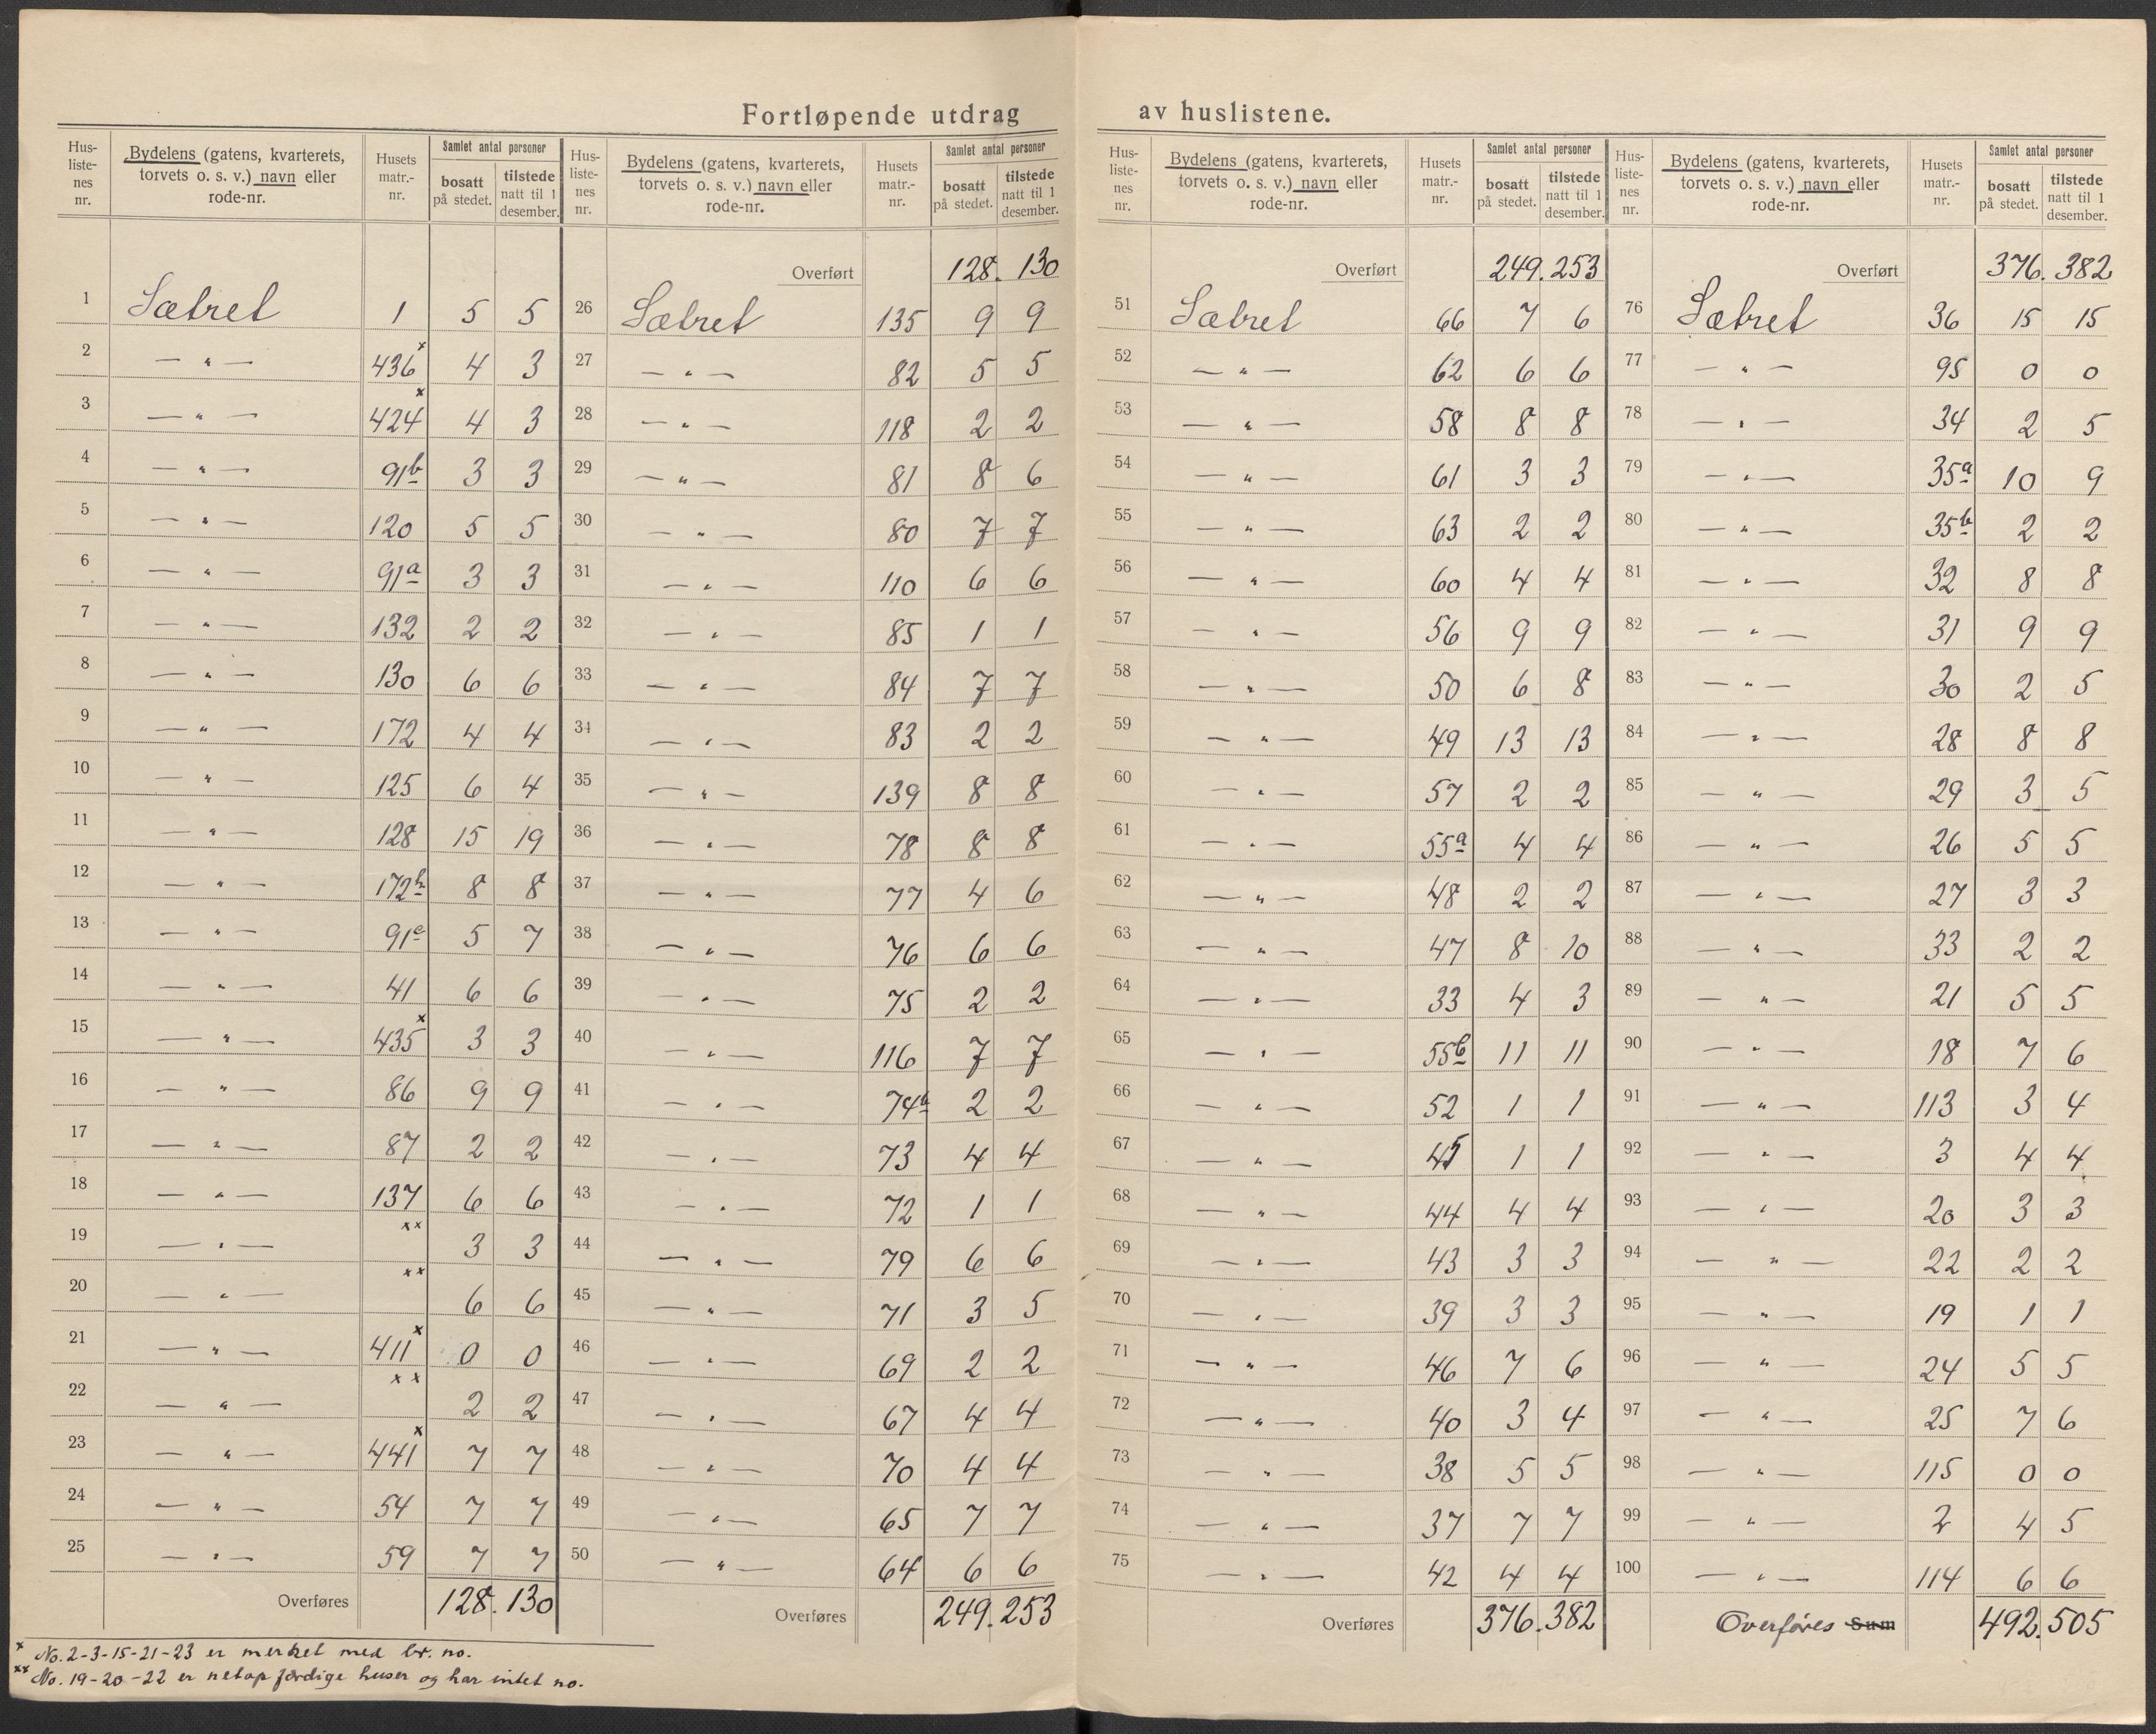 Fortløpende utdrag av huslistene.
Hus-liste-nes nr. | Bydelens (gatens, kvarterets, torvets o. s. v.) navn eller rode-nr. | Husets matr.-nr. | Samlet antal personer bosatt på stedet. | tilstede natt til 1 desember.
1 Sætret 1 5 5
2 — " — 436 x 4 3
3 — " — 424 x 4 3
4 — " — 91b 3 3
5 — " — 120 5 5
6 — " — 91a 3 3
7 — " — 132 2 2
8 — " — 130 6 6
9 — " — 172 4 4
10 — " — 125 6 4
11 — " — 128 15 19
12 — " — 172b 8 8
13 — " — 91c 5 7
14 — " — 41 6 6
15 — " — 435 x 3 3
16 — " — 86 9 9
17 — " — 87 2 2
18 — " — 137 6 6
19 — " — xx 3 3
20 — " — xx 6 6
21 — " — 411 x 0 0
22 — " — xx 2 2
23 — " — 441 x 7 7
24 — " — 54 7 7
25 — " — 59 7 7
Overføres 128. 130
x No. 2-3-15-21-23 er merket med br. no.
xx No. 19-20-22 er netop færdige huser og har intet no.
Hus-liste-nes nr. | Bydelens (gatens, kvarterets, torvets o. s. v.) navn eller rode-nr. | Husets matr.-nr. | Samlet antal personer bosatt på stedet. | tilstede natt til 1 desember.
Overført 128. 130
26 Sætret 135 9 9
27 — " — 82 5 5
28 — " — 118 2 2
29 — " — 81 8 6
30 — " — 80 7 7
31 — " — 110 6 6
32 — " — 85 1 1
33 — " — 84 7 7
34 — " — 83 2 2
35 — " — 139 8 8
36 — " — 78 8 8
37 — " — 77 4 6
38 — " — 76 6 6
39 — " — 75 2 2
40 — " — 116 7 7
41 — " — 74b 2 2
42 — " — 73 4 4
43 — " — 72 1 1
44 — " — 79 6 6
45 — " — 71 3 5
46 — " — 69 2 2
47 — " — 67 4 4
48 — " — 70 4 4
49 — " — 65 7 7
50 — " — 64 6 6
Overføres 249. 253
Hus-liste-nes nr. | Bydelens (gatens, kvarterets, torvets o. s. v.) navn eller rode-nr. | Husets matr.-nr. | Samlet antal personer bosatt på stedet. | tilstede natt til 1 desember.
Overført 249. 253
51 Sætret 66 7 6
52 — " — 62 6 6
53 — " — 58 8 8
54 — " — 61 3 3
55 — " — 63 2 2
56 — " — 60 4 4
57 — " — 56 9 9
58 — " — 50 6 8
59 — " — 49 13 13
60 — " — 57 2 2
61 — " — 55a 4 4
62 — " — 48 2 2
63 — " — 47 8 10
64 — " — 33 4 3
65 — " — 55b 11 11
66 — " — 52 1 1
67 — " — 45 1 1
68 — " — 44 4 4
69 — " — 43 3 3
70 — " — 39 3 3
71 — " — 46 7 6
72 — " — 40 3 4
73 — " — 38 5 5
74 — " — 37 7 7
75 — " — 42 4 4
Overføres 376. 382
Hus-liste-nes nr. | Bydelens (gatens, kvarterets, torvets o. s. v.) navn eller rode-nr. | Husets matr.-nr. | Samlet antal personer bosatt på stedet. | tilstede natt til 1 desember.
Overført 376. 382
76 Sætret 36 15 15
77 — " — 95 0 0
78 — " — 34 2 5
79 — " — 35a 10 9
80 — " — 35b 2 2
81 — " — 32 8 8
82 — " — 31 9 9
83 — " — 30 2 5
84 — " — 28 8 8
85 — " — 29 3 5
86 — " — 26 5 5
87 — " — 27 3 3
88 — " — 33 2 2
89 — " — 21 5 5
90 — " — 18 7 6
91 — " — 113 3 4
92 — " — 3 4 4
93 — " — 20 3 3
94 — " — 22 2 2
95 — " — 19 1 1
96 — " — 24 5 5
97 — " — 25 7 6
98 — " — 115 0 0
99 — " — 2 4 5
100 — " — 114 6 6
Overføres Sum 492. 505